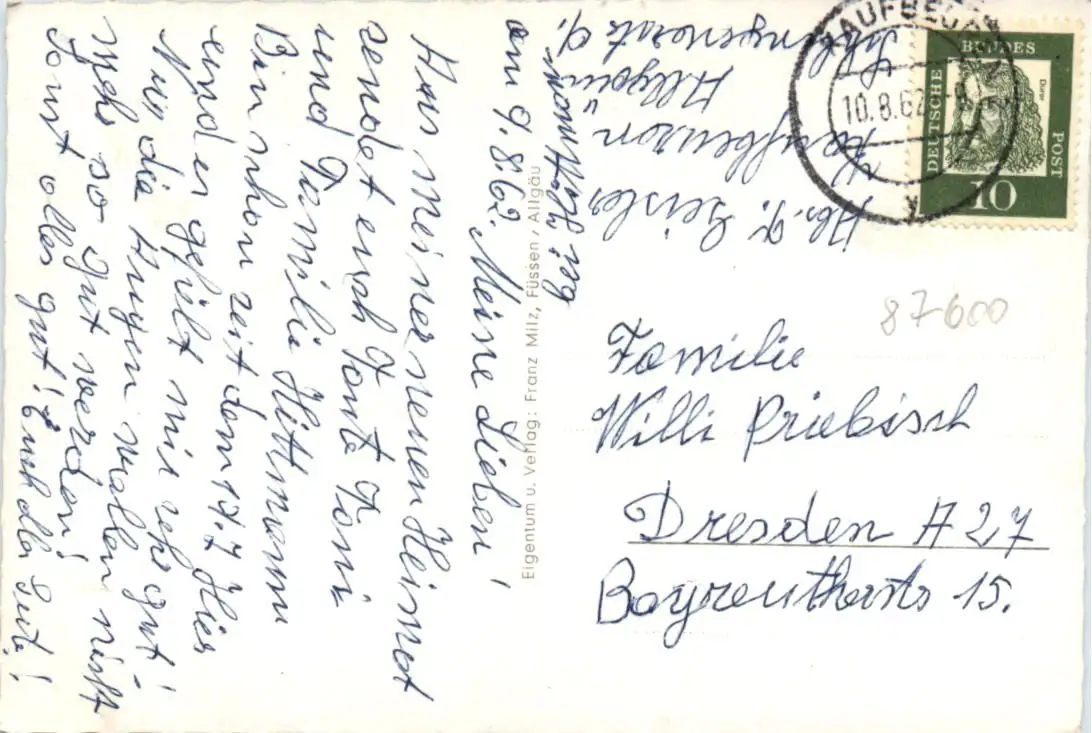 am 9.8.62. Meine Lieben!
Aus meiner neuen Heimat
sendet euch Tante Toni
und Familie Hüttmann
Bin schon seit dem 17.7 Hier
und es gefält mir sehr gut!
Nur die Augen wollen nicht
mehr so gut werden!
Sonst alles gut! Euch alles Gute!
bei Hüttmann
Abs. A. Geisler
Kaufbeuren
Allgäu
KAUFBEUREN
10.8.62
DEUTSCHE
BUNDES
POST
Dürer
10
87-600
Familie
Willi Priebisch
Dresden A 27
Bayreutherstr 15.
Eigentum u. Verlag: Franz Milz, Füssen / Allgäu